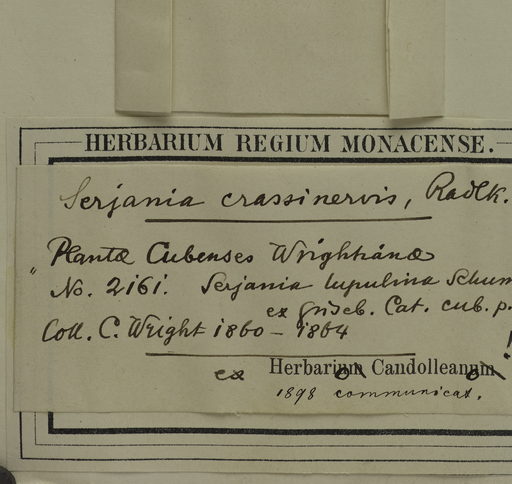 HERBARIUM REGIUM MONACENSE.
Serjania crassinervis, Radlk.
Plantæ Cubenses Wrightianæ
" No. 2161. Serjania lupulina Schum
ex Griseb. Cat. cub. p.
Coll. C. Wright 1860 – 1864 "!
ex Herbario Candolleano
1898 communicat.